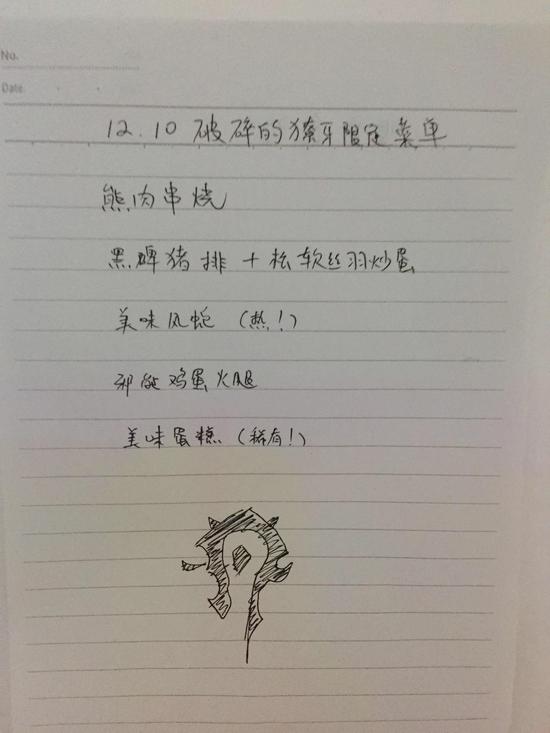 No.
Date
12.10 破碎的獠牙限定菜单
熊肉串烧
黑啤猪排+松软丝羽炒蛋
美味风蛇(热!)
邪能鸡蛋火腿
美味蛋糕(稀有!)